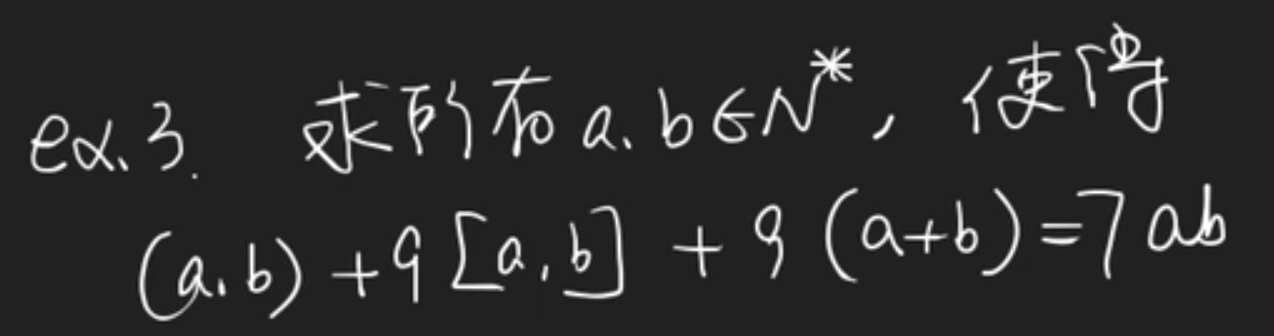 ex.3. 求所有a.b∈N*，使得
(a.b)+9[a,b]+9(a+b)=7ab